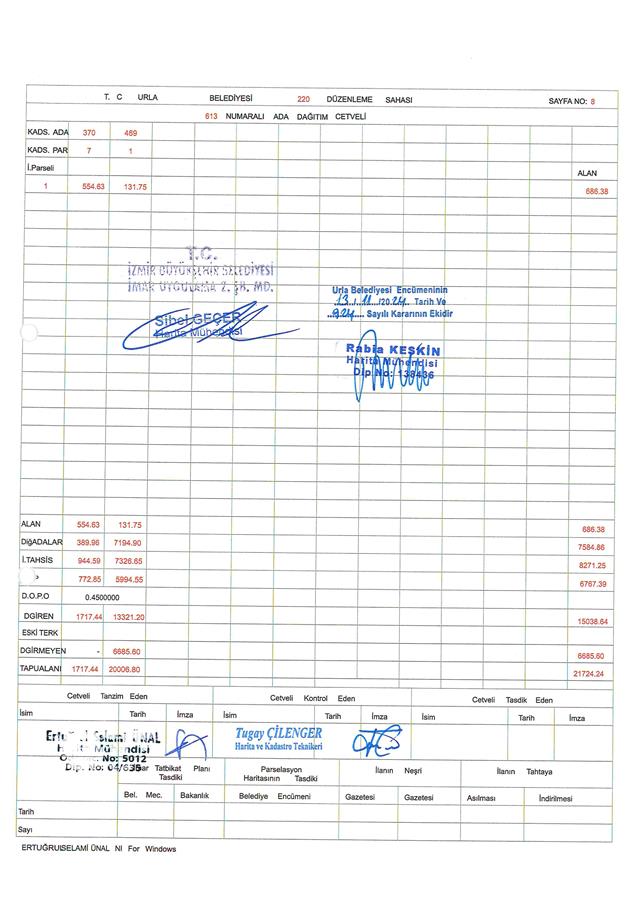 T. C URLA BELEDİYESİ 220 DÜZENLEME SAHASI SAYFA NO: 8
613 NUMARALI ADA DAĞITIM CETVELİ
KADS. ADA 370 469
KADS. PAR 7 1
İ.Parseli ALAN
1 554.63 131.75 686.38
T.C.
İZMİR BÜYÜKŞEHİR BELEDİYESİ
İMAR UYGULAMA 2. ŞB. MD.
Sibel GEÇER
Harita Mühendisi
Urla Belediyesi Encümeninin
13./.11./2024. Tarih Ve
..924.... Sayılı Kararının Ekidir
Rabia KEŞKİN
Harita Mühendisi
Dip No: 138436
ALAN 554.63 131.75 686.38
DiğADALAR 389.96 7194.90 7584.86
İ.TAHSİS 944.59 7326.65 8271.25
772.85 5994.55 6767.39
D.O.P.O 0.4500000
DGİREN 1717.44 13321.20 15038.64
ESKİ TERK
DGİRMEYEN - 6685.60 6685.60
TAPUALANI 1717.44 20006.80 21724.24
Cetveli Tanzim Eden Cetveli Kontrol Eden Cetveli Tasdik Eden
İsim Tarih İmza İsim Tarih İmza İsim Tarih İmza
ÜNAL
No: 5012
Dip. No: 04/635
Tugay ÇİLENGER
Harita ve Kadastro Teknikeri
Tatbikat Planı Tasdiki Parselasyon Haritasının Tasdiki İlanın Neşri İlanın Tahtaya
Bel. Mec. Bakanlık Belediye Encümeni Gazetesi Gazetesi Asılması İndirilmesi
Tarih
Sayı
ERTUĞRUlSELAMİ ÜNAL NI For Windows